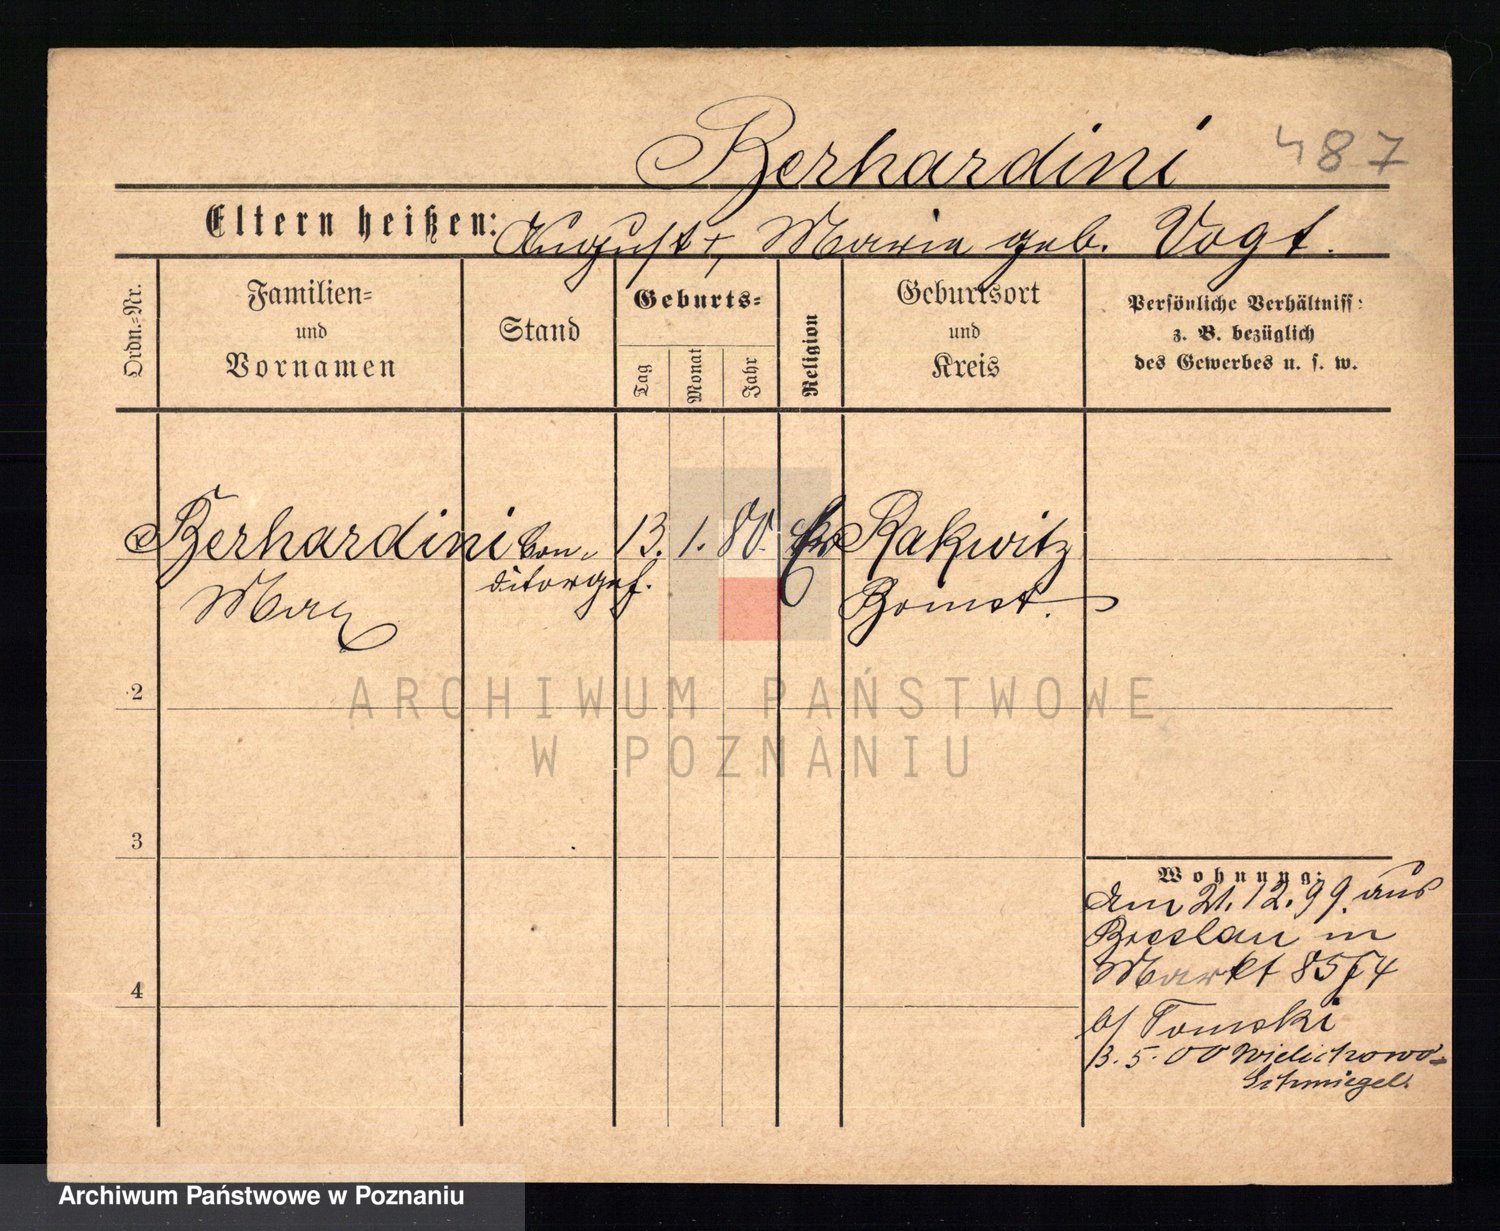 Berhardini
487
Eltern heißen: August †, Maria geb. Vogt.
Ordn.-Nr.
Familien-
und
Vornamen
Stand
Geburts-
Tag
Monat
Jahr
Religion
Geburtsort
und
Kreis
Persönliche Verhältniss-
z. B. bezüglich
des Gewerbes u. s. w.
Berhardini Con- 13. 1. 80. Rakwitz
Max ditorgeh. Bomst.
2
ARCHIWUM PAŃSTWOWE
W POZNANIU
3
Wohnung:
Am 21.12.99. aus
Breslau in
Markt 85
b/ Tomski
3.5.00 Wielichowo-
Schmiegel.
4
Archiwum Państwowe w Poznaniu